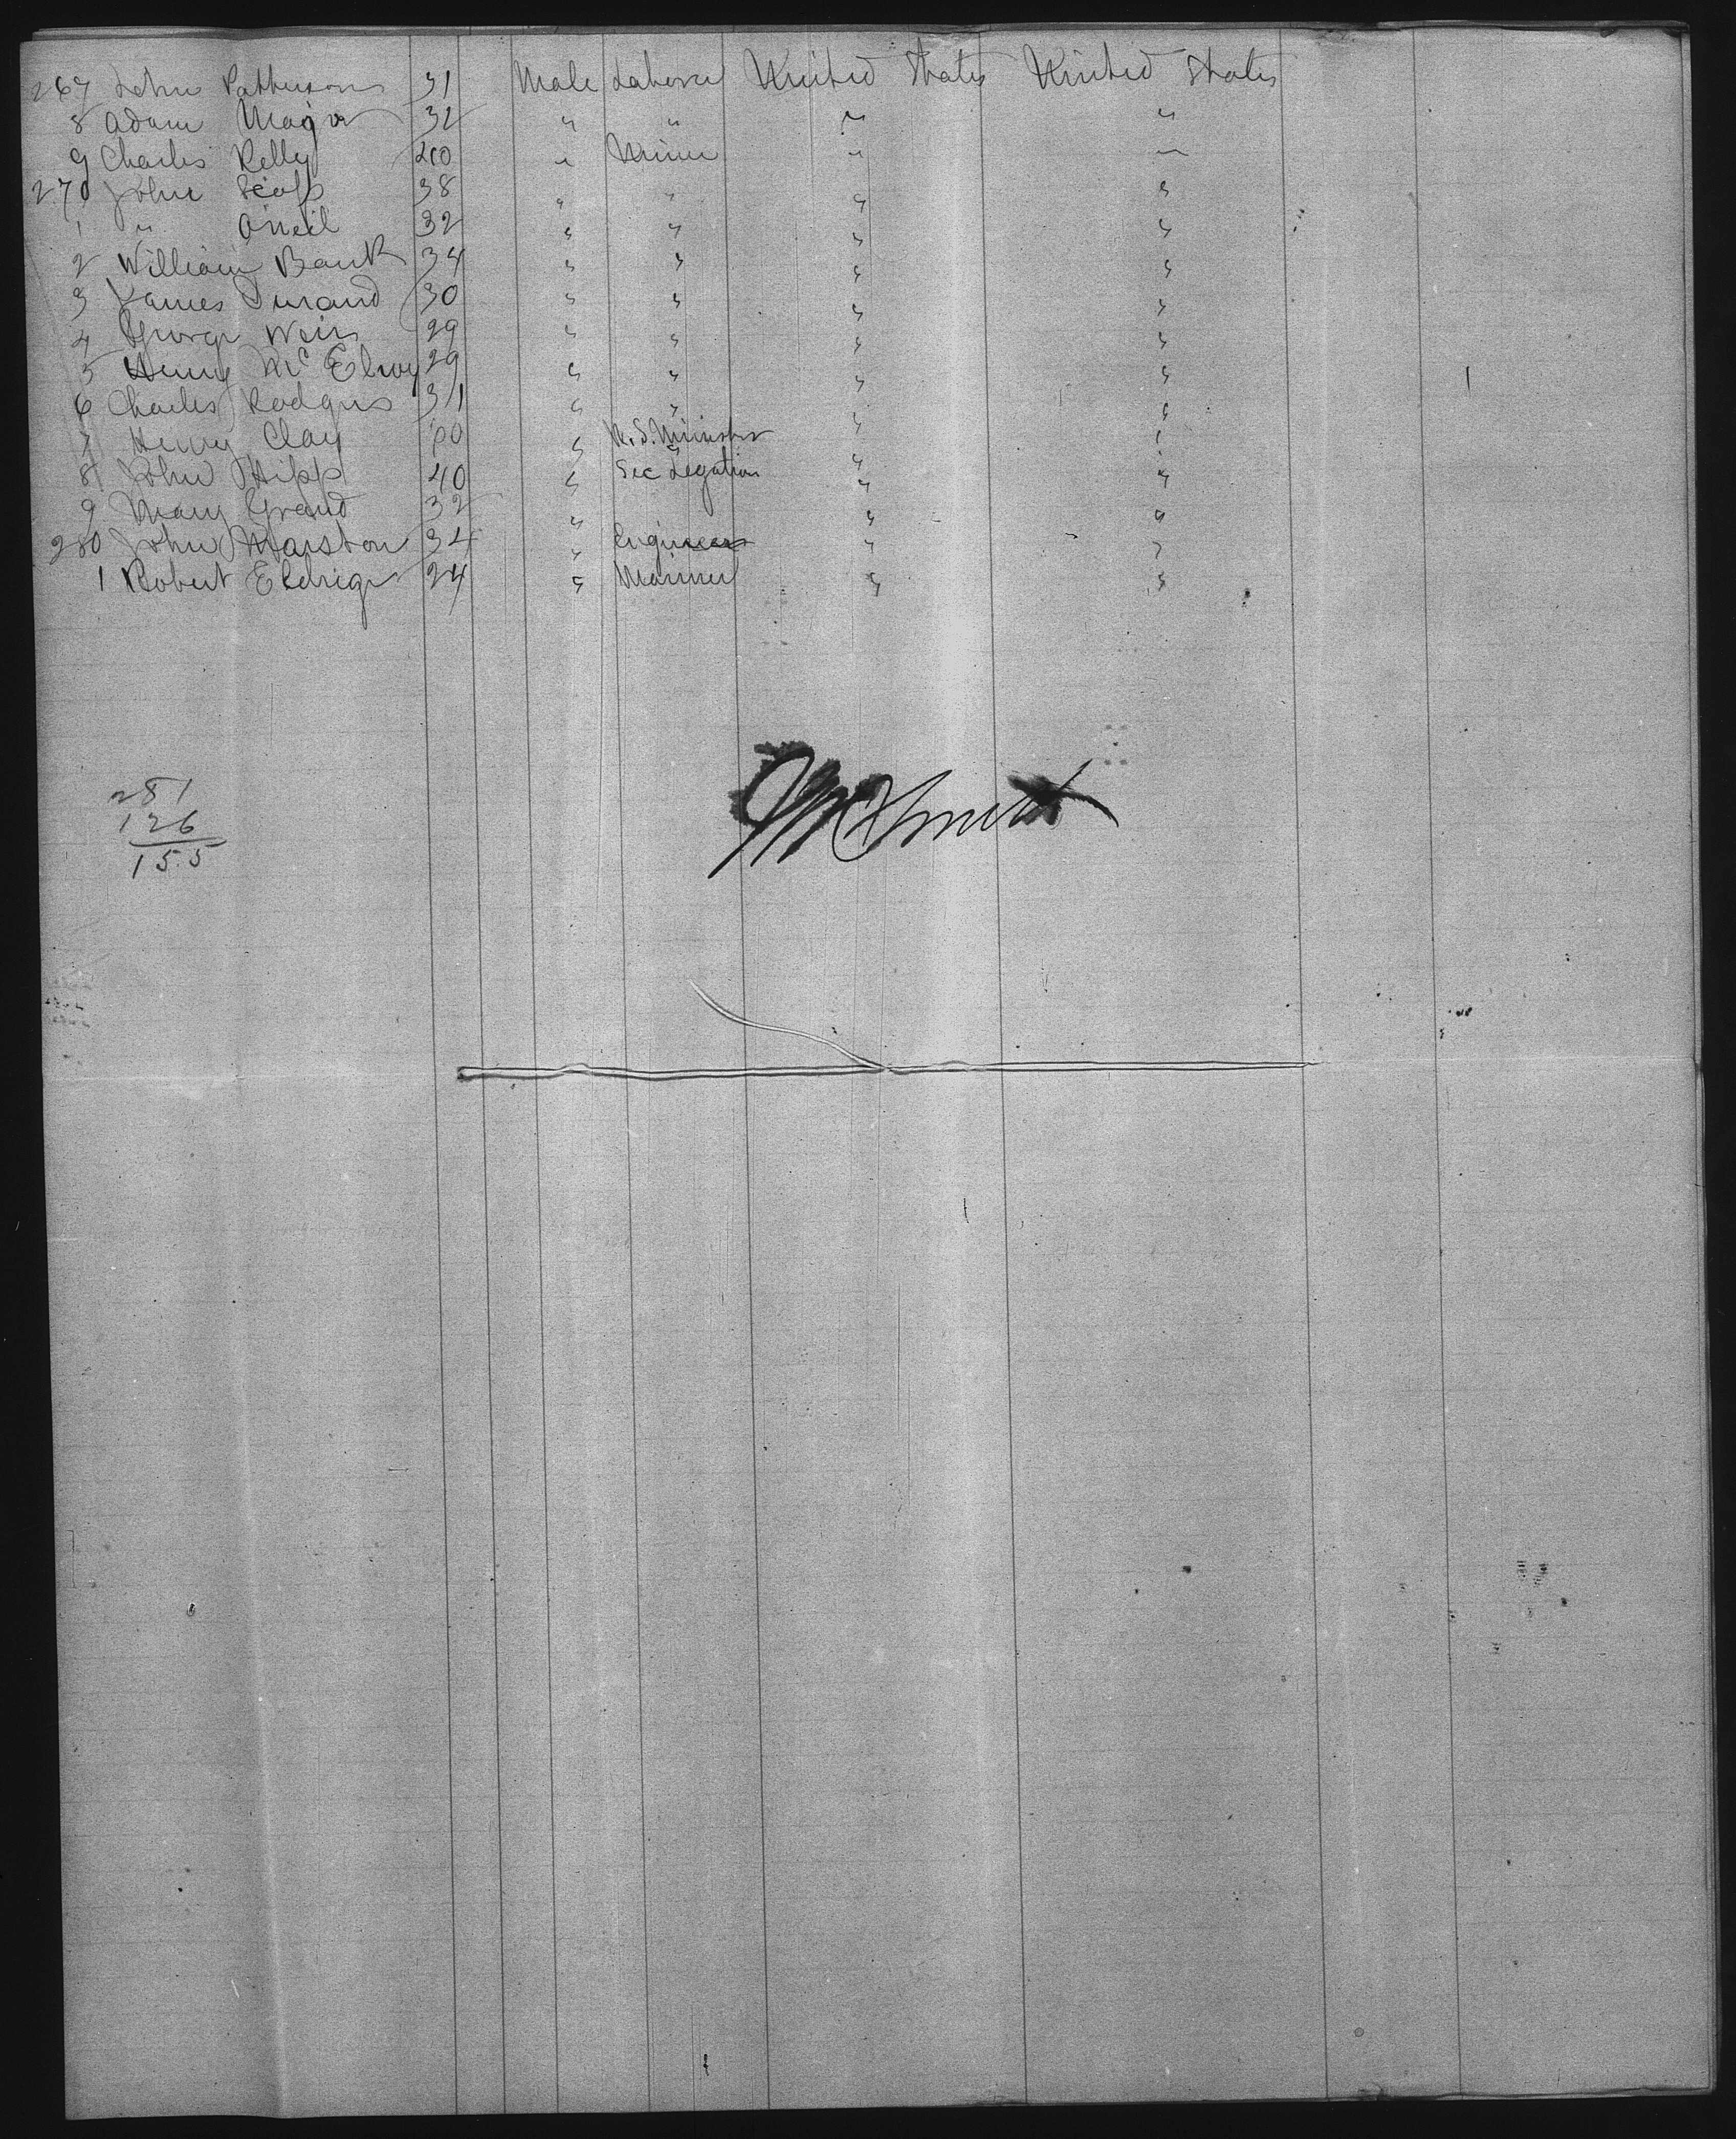 267 John Patterson 31 Male Laborer United States United States
8 Adam Major 32 " " " "
9 Charles Kelly 40 " Miner " "
270 John Scalp 38 " " " "
1 " Oneil 32 " " " "
2 William Bank 34 " " " "
3 James Durand 30 " " " "
4 George Weir 29 " " " "
5 Henry McElroy 29 " " " "
6 Charles Rodgers 31 " " " "
7 Henry Clay 60 " U.S. Minister " "
8 John Hipp 40 " Sec Legation " "
9 Mary Grand 32 " " "
280 John Marston 34 " Engineer " "
1 Robert Eldrige 24 " Mariner " "
281
126
155